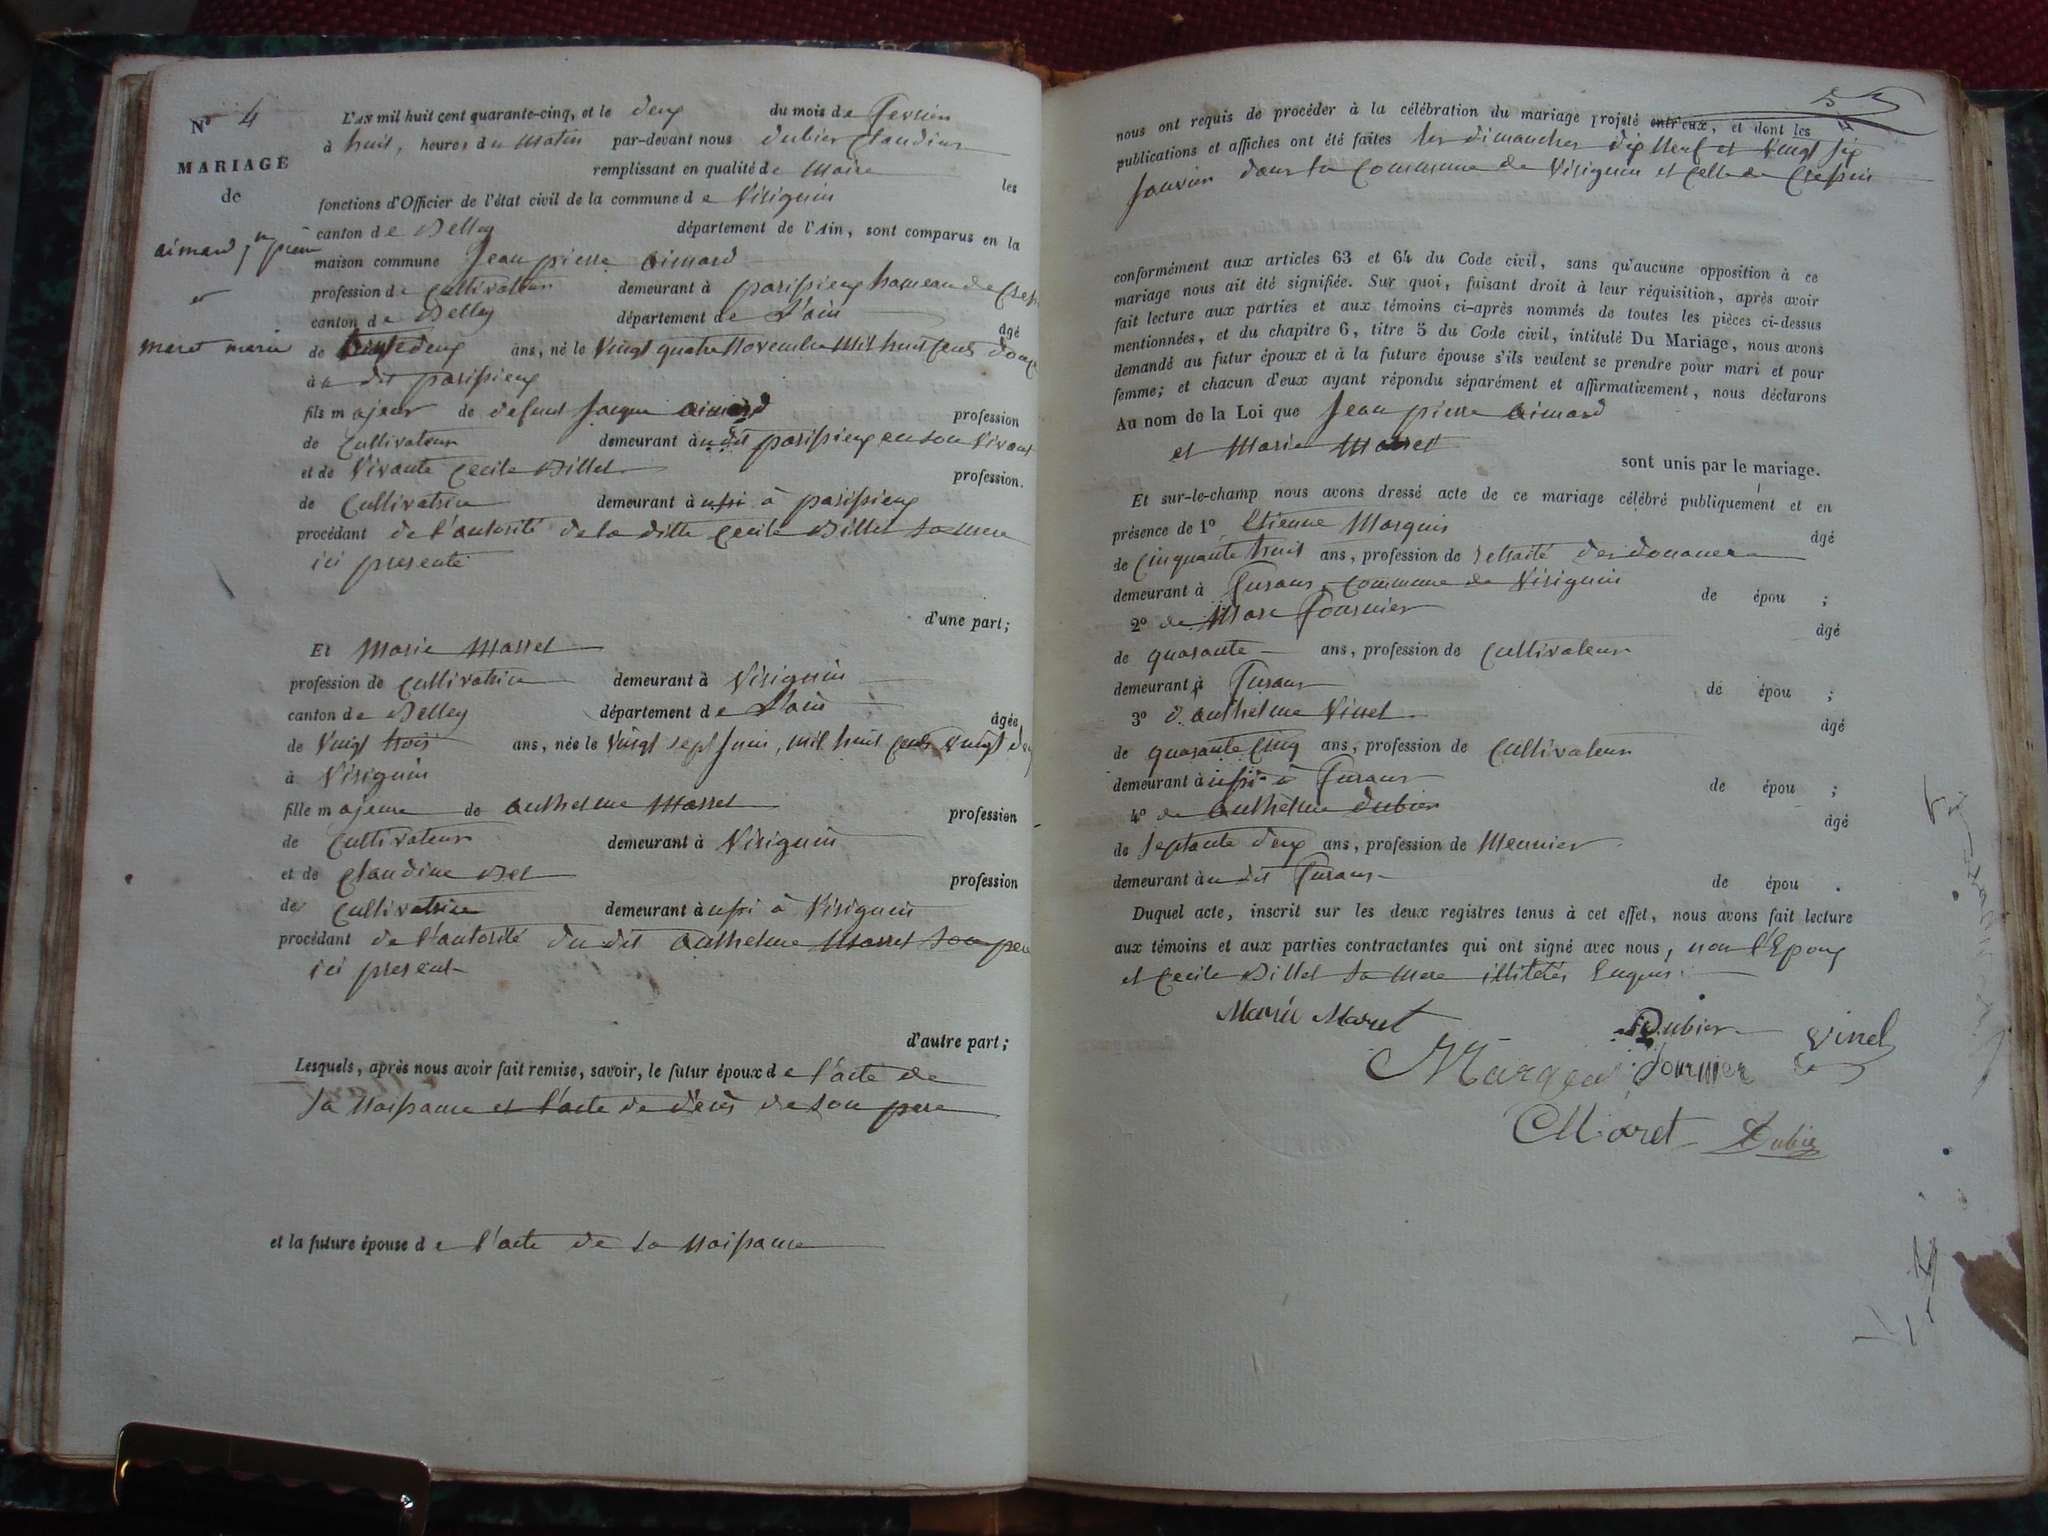 N° 4
MARIAGE
de
aimard jn pierre
et
maret marie
L'AN mil huit cent quarante-cinq, et le deux du mois de Fevrier
à huit, heures du Matin par-devant nous dubier Claudius
remplissant en qualité de Maire les
fonctions d'Officier de l'état civil de la commune de Virignin
canton de Belley département de l'Ain, sont comparus en la
maison commune Jean pierre aimard
profession de Cultivateur demeurant à parissieux hameau de
canton de Belley département de l'ain âgé
de deux ans, né le Vingt quatre Novembre Mil huit Cents douze
à u dit parissieux
fils majeur de defunt Jacque aimard profession
de Cultivateur demeurant à u dit parissieux en son Vivant
et de Vivante Cecile Billet profession.
de Cultivatrice demeurant à ussi à parissieux
procédant de l'autorité de la ditte Cecile Billet sa mere
ici presente
d'une part;
Et Marie Marret
profession de Cultivatrice demeurant à Virignin
canton de Belley département de l'ain âgée
de Vingt trois ans, née le Vingt sept Juin, mil huit Cents Vingt
à Virignin
fille majeure de Anthelme Marret profession
de Cultivateur demeurant à Virignin
et de Claudine profession
de Cultivatrice demeurant à ussi à Virignin
procédant de l'autorité du dit Anthelme Marret son pere
ici present
d'autre part;
Lesquels, après nous avoir fait remise, savoir, le futur époux de l'acte de
sa Naissance et l'acte de décès de son pere
et la future épouse de l'acte de sa Naissance
nous ont requis de procéder à la célébration du mariage projeté entr'eux, et dont les
publications et affiches ont été faites les dimanches dix Neuf et Vingt six
Janvier dans la Commune de Virignin et Celle de
conformément aux articles 63 et 64 du Code civil, sans qu'aucune opposition à ce
mariage nous ait été signifiée. Sur quoi, faisant droit à leur réquisition, après avoir
fait lecture aux parties et aux témoins ci-après nommés de toutes les pièces ci-dessus
mentionnées, et du chapitre 6, titre 5 du Code civil, intitulé Du Mariage, nous avons
demandé au futur époux et à la future épouse s'ils veulent se prendre pour mari et pour
femme; et chacun d'eux ayant répondu séparément et affirmativement, nous déclarons
Au nom de la Loi que Jean pierre aimard
et Marie Marret
sont unis par le mariage.
Et sur-le-champ nous avons dressé acte de ce mariage célébré publiquement et en
présence de 1° Etienne Marquis âgé
de Cinquante huit ans, profession de retraité des douanes
demeurant à Furans Commune de Virignin de épou ;
2° de Marc Fournier âgé
de quarante ans, profession de Cultivateur
demeurant à Furans de épou ;
3° d'Anthelme Vinet âgé
de quarante Cinq ans, profession de Cultivateur
demeurant à ussi à Furans de épou ;
4° de Anthelme Dubier âgé
de Septante deux ans, profession de Meunier
demeurant à u dit Furans de épou .
Duquel acte, inscrit sur les deux registres tenus à cet effet, nous avons fait lecture
aux témoins et aux parties contractantes qui ont signé avec nous, non l'Epoux
et Cecile Billet sa mere illiterés Enquis.
Marie Maret
Dubier Vinet
Fournier
Maret Dubier